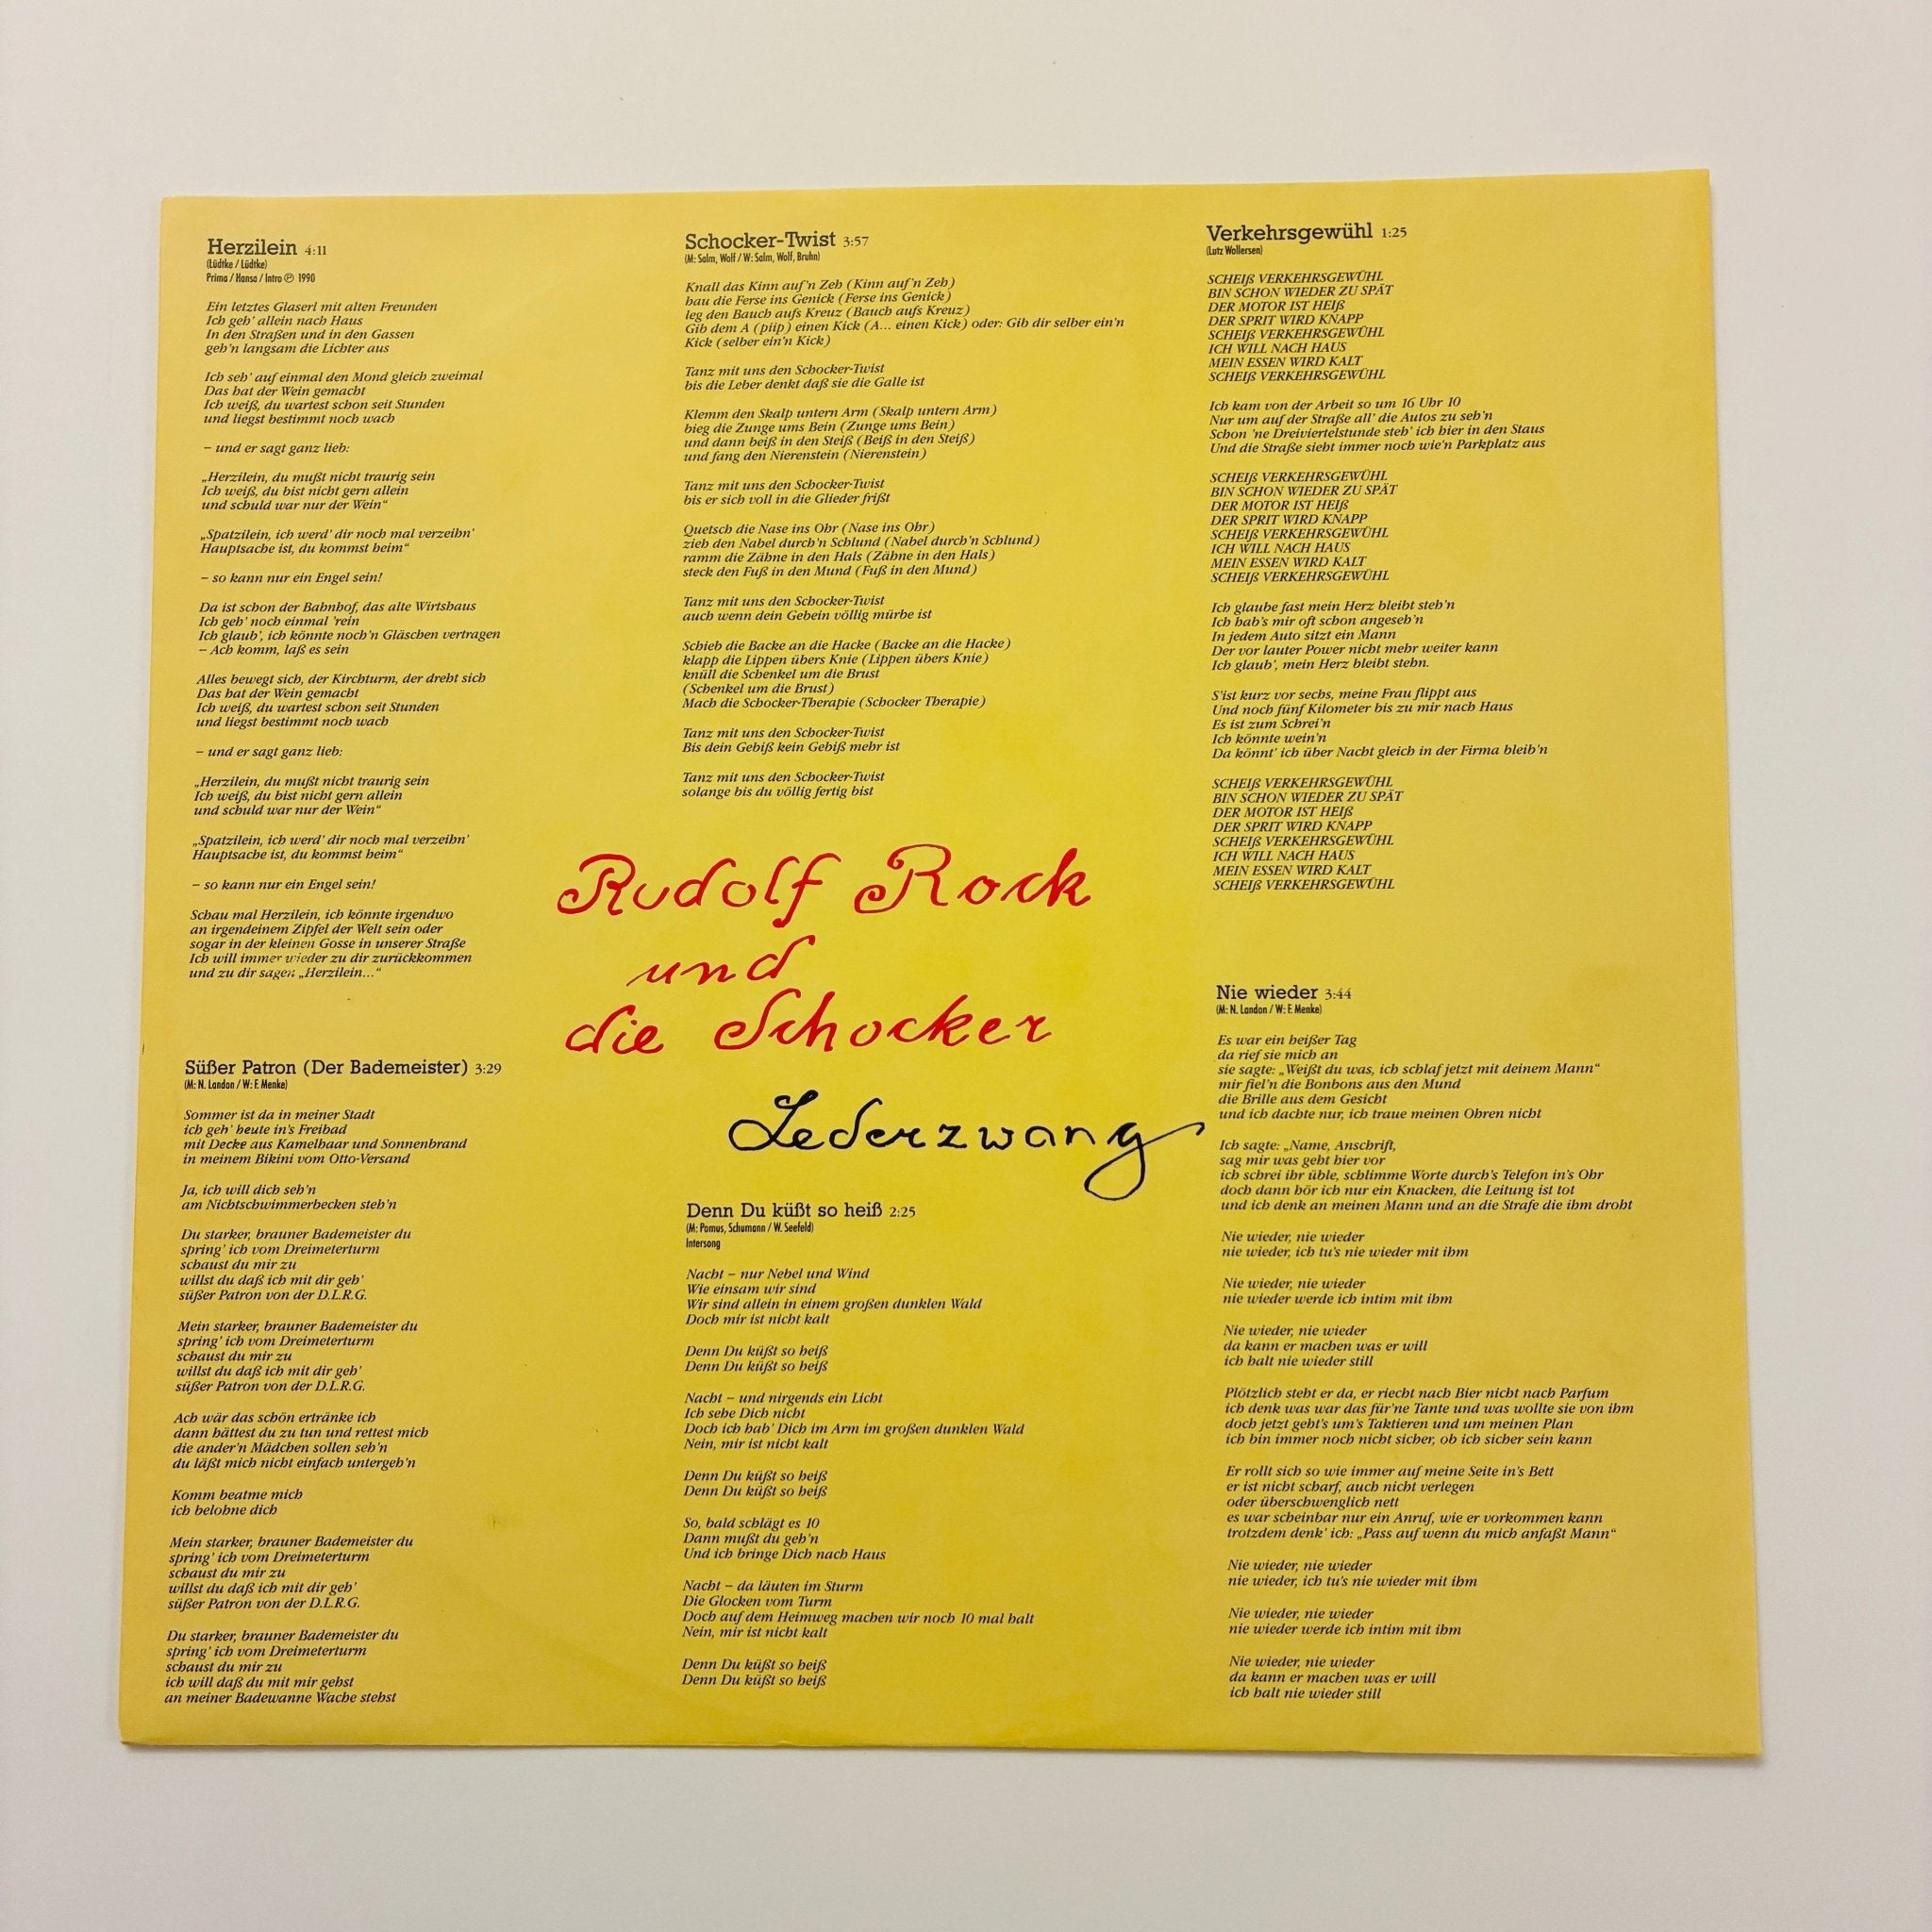 Herzilein 4:11
(Lüdtke / Lüdtke)
Prima / Hansa / Intro ℗ 1990
Ein letztes Glaserl mit alten Freunden
Ich geh' allein nach Haus
In den Straßen und in den Gassen
geh'n langsam die Lichter aus
Ich seh' auf einmal den Mond gleich zweimal
Das hat der Wein gemacht
Ich weiß, du wartest schon seit Stunden
und liegst bestimmt noch wach
– und er sagt ganz lieb:
„Herzilein, du mußt nicht traurig sein
Ich weiß, du bist nicht gern allein
und schuld war nur der Wein“
„Spatzilein, ich werd' dir noch mal verzeihn'
Hauptsache ist, du kommst heim“
– so kann nur ein Engel sein!
Da ist schon der Bahnhof, das alte Wirtshaus
Ich geh' noch einmal 'rein
Ich glaub', ich könnte noch'n Gläschen vertragen
– Ach komm, laß es sein
Alles bewegt sich, der Kirchturm, der dreht sich
Das hat der Wein gemacht
Ich weiß, du wartest schon seit Stunden
und liegst bestimmt noch wach
– und er sagt ganz lieb:
„Herzilein, du mußt nicht traurig sein
Ich weiß, du bist nicht gern allein
und schuld war nur der Wein“
„Spatzilein, ich werd' dir noch mal verzeihn'
Hauptsache ist, du kommst heim“
– so kann nur ein Engel sein!
Schau mal Herzilein, ich könnte irgendwo
an irgendeinem Zipfel der Welt sein oder
sogar in der kleinen Gosse in unserer Straße
Ich will immer wieder zu dir zurückkommen
und zu dir sagen „Herzilein...“
Süßer Patron (Der Bademeister) 3:29
(M: N. Landon / W: F. Menke)
Sommer ist da in meiner Stadt
ich geh' heute in's Freibad
mit Decke aus Kamelhaar und Sonnenbrand
in meinem Bikini vom Otto-Versand
Ja, ich will dich seh'n
am Nichtschwimmerbecken steh'n
Du starker, brauner Bademeister du
spring' ich vom Dreimeterturm
schaust du mir zu
willst du daß ich mit dir geh'
süßer Patron von der D.L.R.G.
Mein starker, brauner Bademeister du
spring' ich vom Dreimeterturm
schaust du mir zu
willst du daß ich mit dir geh'
süßer Patron von der D.L.R.G.
Ach wär das schön ertränke ich
dann hättest du zu tun und rettest mich
die ander'n Mädchen sollen seh'n
du läßt mich nicht einfach untergeh'n
Komm beatme mich
ich belohne dich
Mein starker, brauner Bademeister du
spring' ich vom Dreimeterturm
schaust du mir zu
willst du daß ich mit dir geh'
süßer Patron von der D.L.R.G.
Du starker, brauner Bademeister du
spring' ich vom Dreimeterturm
schaust du mir zu
ich will daß du mit mir gehst
an meiner Badewanne Wache stehst
Schocker-Twist 3:57
(M: Salm, Wolf / W: Salm, Wolf, Bruhn)
Knall das Kinn auf'n Zeh (Kinn auf'n Zeh)
hau die Ferse ins Genick (Ferse ins Genick)
leg den Bauch aufs Kreuz (Bauch aufs Kreuz)
Gib dem A (piip) einen Kick (A... einen Kick) oder: Gib dir selber ein'n
Kick (selber ein'n Kick)
Tanz mit uns den Schocker-Twist
bis die Leber denkt daß sie die Galle ist
Klemm den Skalp untern Arm (Skalp untern Arm)
bieg die Zunge ums Bein (Zunge ums Bein)
und dann beiß in den Steiß (Beiß in den Steiß)
und fang den Nierenstein (Nierenstein)
Tanz mit uns den Schocker-Twist
bis er sich voll in die Glieder frißt
Quetsch die Nase ins Ohr (Nase ins Ohr)
zieh den Nabel durch'n Schlund (Nabel durch'n Schlund)
ramm die Zähne in den Hals (Zähne in den Hals)
steck den Fuß in den Mund (Fuß in den Mund)
Tanz mit uns den Schocker-Twist
auch wenn dein Gebein völlig mürbe ist
Schieb die Backe an die Hacke (Backe an die Hacke)
klapp die Lippen übers Knie (Lippen übers Knie)
knüll die Schenkel um die Brust
(Schenkel um die Brust)
Mach die Schocker-Therapie (Schocker Therapie)
Tanz mit uns den Schocker-Twist
Bis dein Gebiß kein Gebiß mehr ist
Tanz mit uns den Schocker-Twist
solange bis du völlig fertig bist
Rudolf Rock
und
die Schocker
Lederzwang
Denn Du küßt so heiß 2:25
(M: Pomus, Schumann / W. Seefeld)
Intersong
Nacht – nur Nebel und Wind
Wie einsam wir sind
Wir sind allein in einem großen dunklen Wald
Doch mir ist nicht kalt
Denn Du küßt so heiß
Denn Du küßt so heiß
Nacht – und nirgends ein Licht
Ich sehe Dich nicht
Doch ich hab' Dich im Arm im großen dunklen Wald
Nein, mir ist nicht kalt
Denn Du küßt so heiß
Denn Du küßt so heiß
So, bald schlägt es 10
Dann mußt du geh'n
Und ich bringe Dich nach Haus
Nacht – da läuten im Sturm
Die Glocken vom Turm
Doch auf dem Heimweg machen wir noch 10 mal halt
Nein, mir ist nicht kalt
Denn Du küßt so heiß
Denn Du küßt so heiß
Verkehrsgewühl 1:25
(Lutz Wollersen)
SCHEIß VERKEHRSGEWÜHL
BIN SCHON WIEDER ZU SPÄT
DER MOTOR IST HEIß
DER SPRIT WIRD KNAPP
SCHEIß VERKEHRSGEWÜHL
ICH WILL NACH HAUS
MEIN ESSEN WIRD KALT
SCHEIß VERKEHRSGEWÜHL
Ich kam von der Arbeit so um 16 Uhr 10
Nur um auf der Straße all' die Autos zu seh'n
Schon 'ne Dreiviertelstunde steh' ich hier in den Staus
Und die Straße sieht immer noch wie'n Parkplatz aus
SCHEIß VERKEHRSGEWÜHL
BIN SCHON WIEDER ZU SPÄT
DER MOTOR IST HEIß
DER SPRIT WIRD KNAPP
SCHEIß VERKEHRSGEWÜHL
ICH WILL NACH HAUS
MEIN ESSEN WIRD KALT
SCHEIß VERKEHRSGEWÜHL
Ich glaube fast mein Herz bleibt steh'n
Ich hab's mir oft schon angeseh'n
In jedem Auto sitzt ein Mann
Der vor lauter Power nicht mehr weiter kann
Ich glaub', mein Herz bleibt stehn.
S'ist kurz vor sechs, meine Frau flippt aus
Und noch fünf Kilometer bis zu mir nach Haus
Es ist zum Schrei'n
Ich könnte wein'n
Da könnt' ich über Nacht gleich in der Firma bleib'n
SCHEIß VERKEHRSGEWÜHL
BIN SCHON WIEDER ZU SPÄT
DER MOTOR IST HEIß
DER SPRIT WIRD KNAPP
SCHEIß VERKEHRSGEWÜHL
ICH WILL NACH HAUS
MEIN ESSEN WIRD KALT
SCHEIß VERKEHRSGEWÜHL
Nie wieder 3:44
(M: N. Landon / W: F. Menke)
Es war ein heißer Tag
da rief sie mich an
sie sagte: „Weißt du was, ich schlaf jetzt mit deinem Mann“
mir fiel'n die Bonbons aus den Mund
die Brille aus dem Gesicht
und ich dachte nur, ich traue meinen Ohren nicht
Ich sagte: „Name, Anschrift,
sag mir was geht hier vor
ich schrei ihr üble, schlimme Worte durch's Telefon in's Ohr
doch dann hör ich nur ein Knacken, die Leitung ist tot
und ich denk an meinen Mann und an die Strafe die ihm droht
Nie wieder, nie wieder
nie wieder, ich tu's nie wieder mit ihm
Nie wieder, nie wieder
nie wieder werde ich intim mit ihm
Nie wieder, nie wieder
da kann er machen was er will
ich halt nie wieder still
Plötzlich steht er da, er riecht nach Bier nicht nach Parfum
ich denk was war das für'ne Tante und was wollte sie von ihm
doch jetzt geht's um's Taktieren und um meinen Plan
ich bin immer noch nicht sicher, ob ich sicher sein kann
Er rollt sich so wie immer auf meine Seite in's Bett
er ist nicht scharf, auch nicht verlegen
oder überschwenglich nett
es war scheinbar nur ein Anruf, wie er vorkommen kann
trotzdem denk' ich: „Pass auf wenn du mich anfaßt Mann“
Nie wieder, nie wieder
nie wieder, ich tu's nie wieder mit ihm
Nie wieder, nie wieder
nie wieder werde ich intim mit ihm
Nie wieder, nie wieder
da kann er machen was er will
ich halt nie wieder still